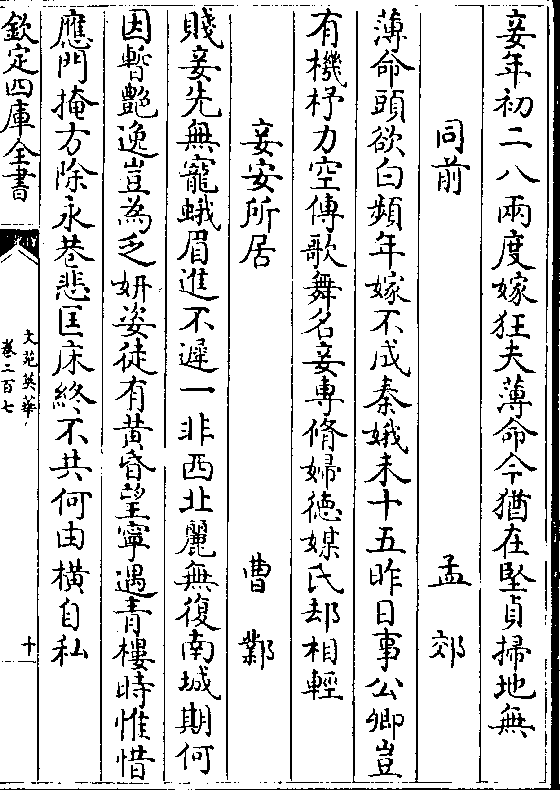 妾年初二八兩度嫁狂夫薄命今猶在堅貞掃地無
同前　孟郊
薄命頭欲白頻年嫁不成秦娥未十五昨日事公卿豈
有機杼力空傳歌舞名妾專脩婦徳媒氏却相輕
妾安所居　曹鄴
賤妾先無寵蛾眉進不遲一非西北麗無復南城期何
因暫艷逸豈為乏妍姿徒有黄昏望寧遇青樓時惟惜
應門掩方除永巷悲匡床終不共何由橫自私
欽定四庫全書
文苑英華
卷二百七
十